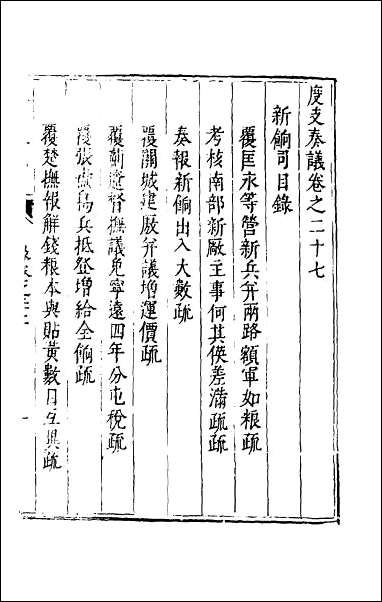 度支奏議卷之二十七
新餉司目錄
覆匡永等營新兵弁兩路額軍加粮疏
考核南部新廠主事何其俠差滿疏疏
奏報新餉出入大數疏
覆關城建厰弁議增運價疏
覆薊遼督撫議免寧遠四年分屯稅疏
覆張島兵抵登增給全餉疏
覆楚撫報解錢粮本與貼黄數目互異疏